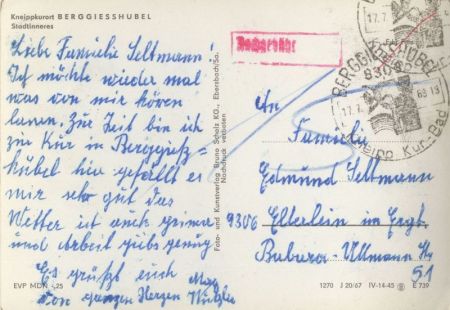 Kneippkurort BERGGIESSHUBEL
Stadtinneres
Liebe Familie Seltmann!
Ich möchte wieder mal
was von mir hören
lassen. Zur Zeit bin ich
zur Kur in Berggieß-
hübel hier gefällt es
mir sehr gut das
Wetter ist auch prima
und Arbeit gibs genug
Es grüßt euch
von ganzen Herzen
Max
EVP MDN -,25
Foto- und Kunstverlag Bruno Scholz KG., Ebersbach/Sa.
Nachdruck verboten
Nachgebühr
BERGGIESSHÜBEL
17.7.
68-18
Kneipp Kur-Bad
An
Familie
Edmund Seltmann
9306 Elterlein im Ergb.
Ullmann Str
51
1270 J 20/67 IV-14-45 E 739